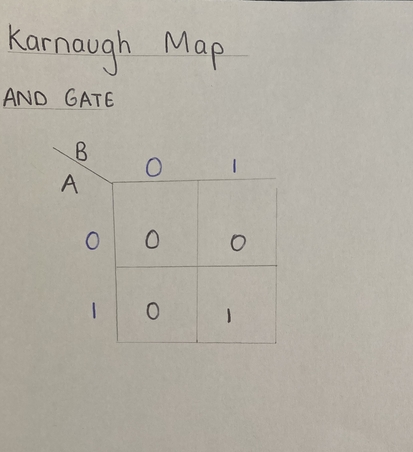 Karnaugh Map
AND GATE
B
A
0 1
0 0 0
1 0 1